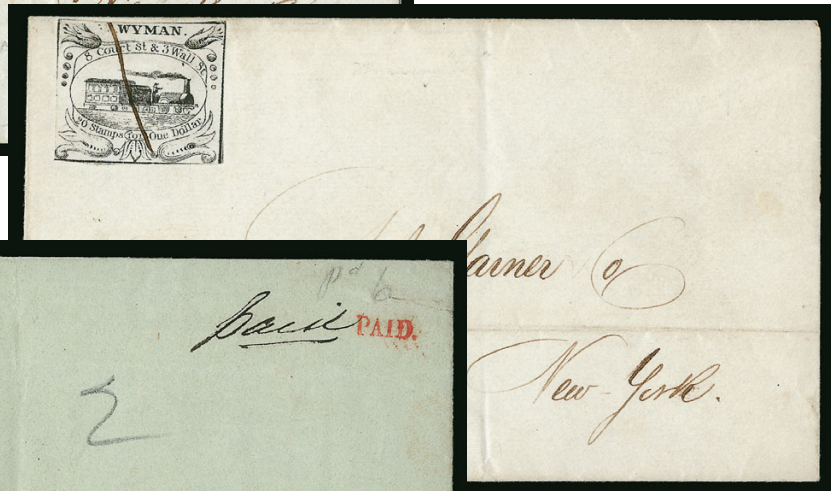 WYMAN.
8 Court St & 3 Wall St
20 Stamps for One Dollar
New-York.
pd 6
Paid PAID.
2